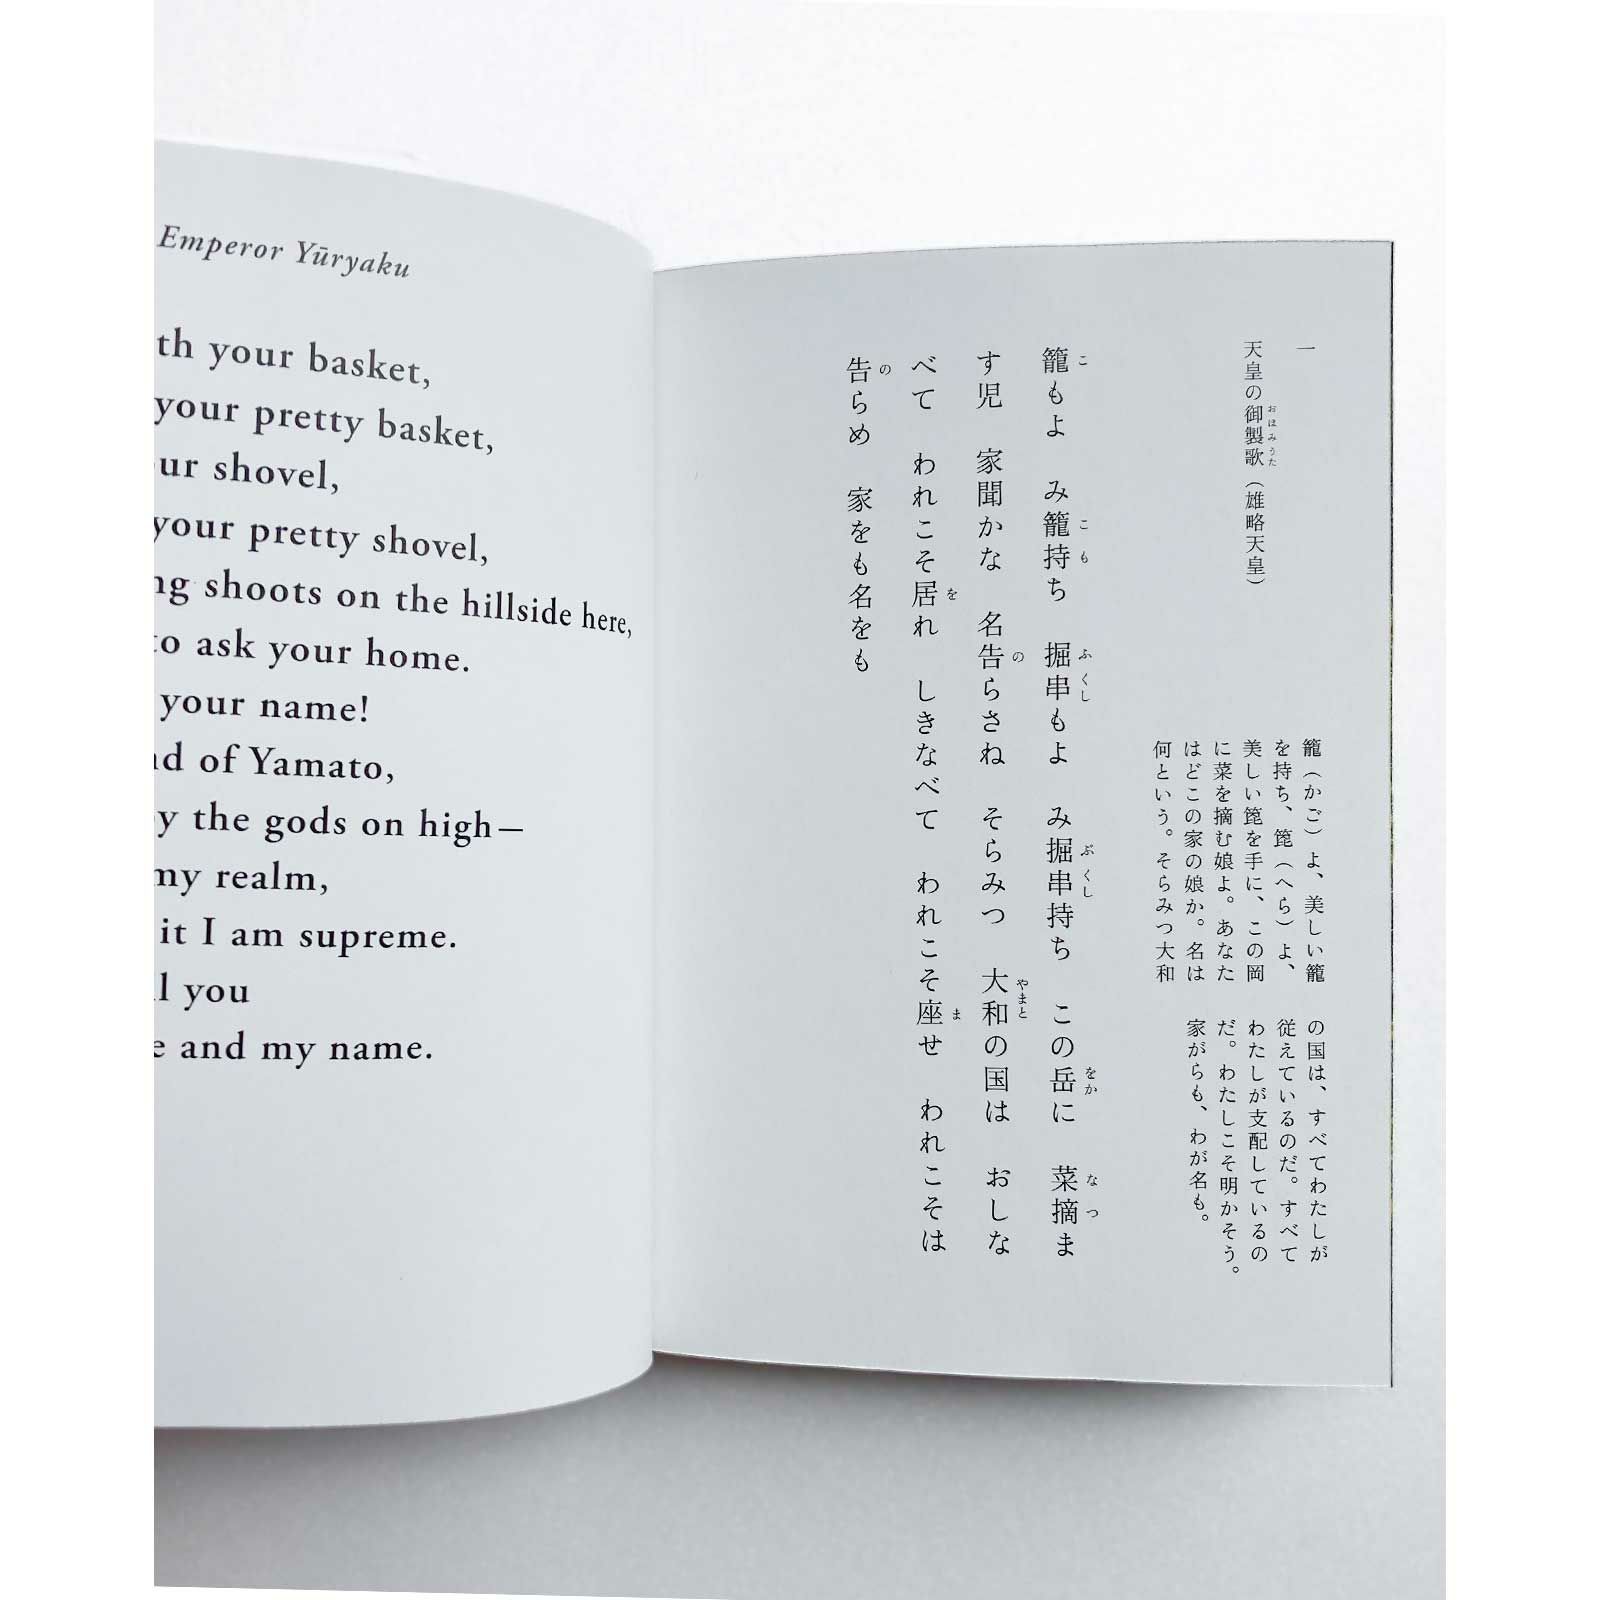 Emperor Yūryaku
your basket,
your pretty basket,
shovel,
your pretty shovel,
shoots on the hillside here,
to ask your home.
your name!
of Yamato,
the gods on high—
my realm,
it I am supreme.
you
and my name.
一
天皇の御製歌（雄略天皇）
おほみうた
籠（かご）よ、美しい籠
を持ち、箆（へら）よ、
美しい箆を手に、この岡
に菜を摘む娘よ。あなた
はどこの家の娘か。名は
何という。そらみつ大和
の国は、すべてわたしが
従えているのだ。すべて
わたしが支配しているの
だ。わたしこそ明かそう。
家がらも、わが名も。
籠もよ　み籠持ち　掘串もよ　み掘串持ち　この岳に　菜摘ま
こ　こ　も　ふくし　ぶくし　をか　なつ
す児　家聞かな　名告らさね　そらみつ　大和の国は　おしな
の　やまと
べて　われこそ居れ　しきなべて　われこそ座せ　われこそは
を　ま
告らめ　家をも名をも
の